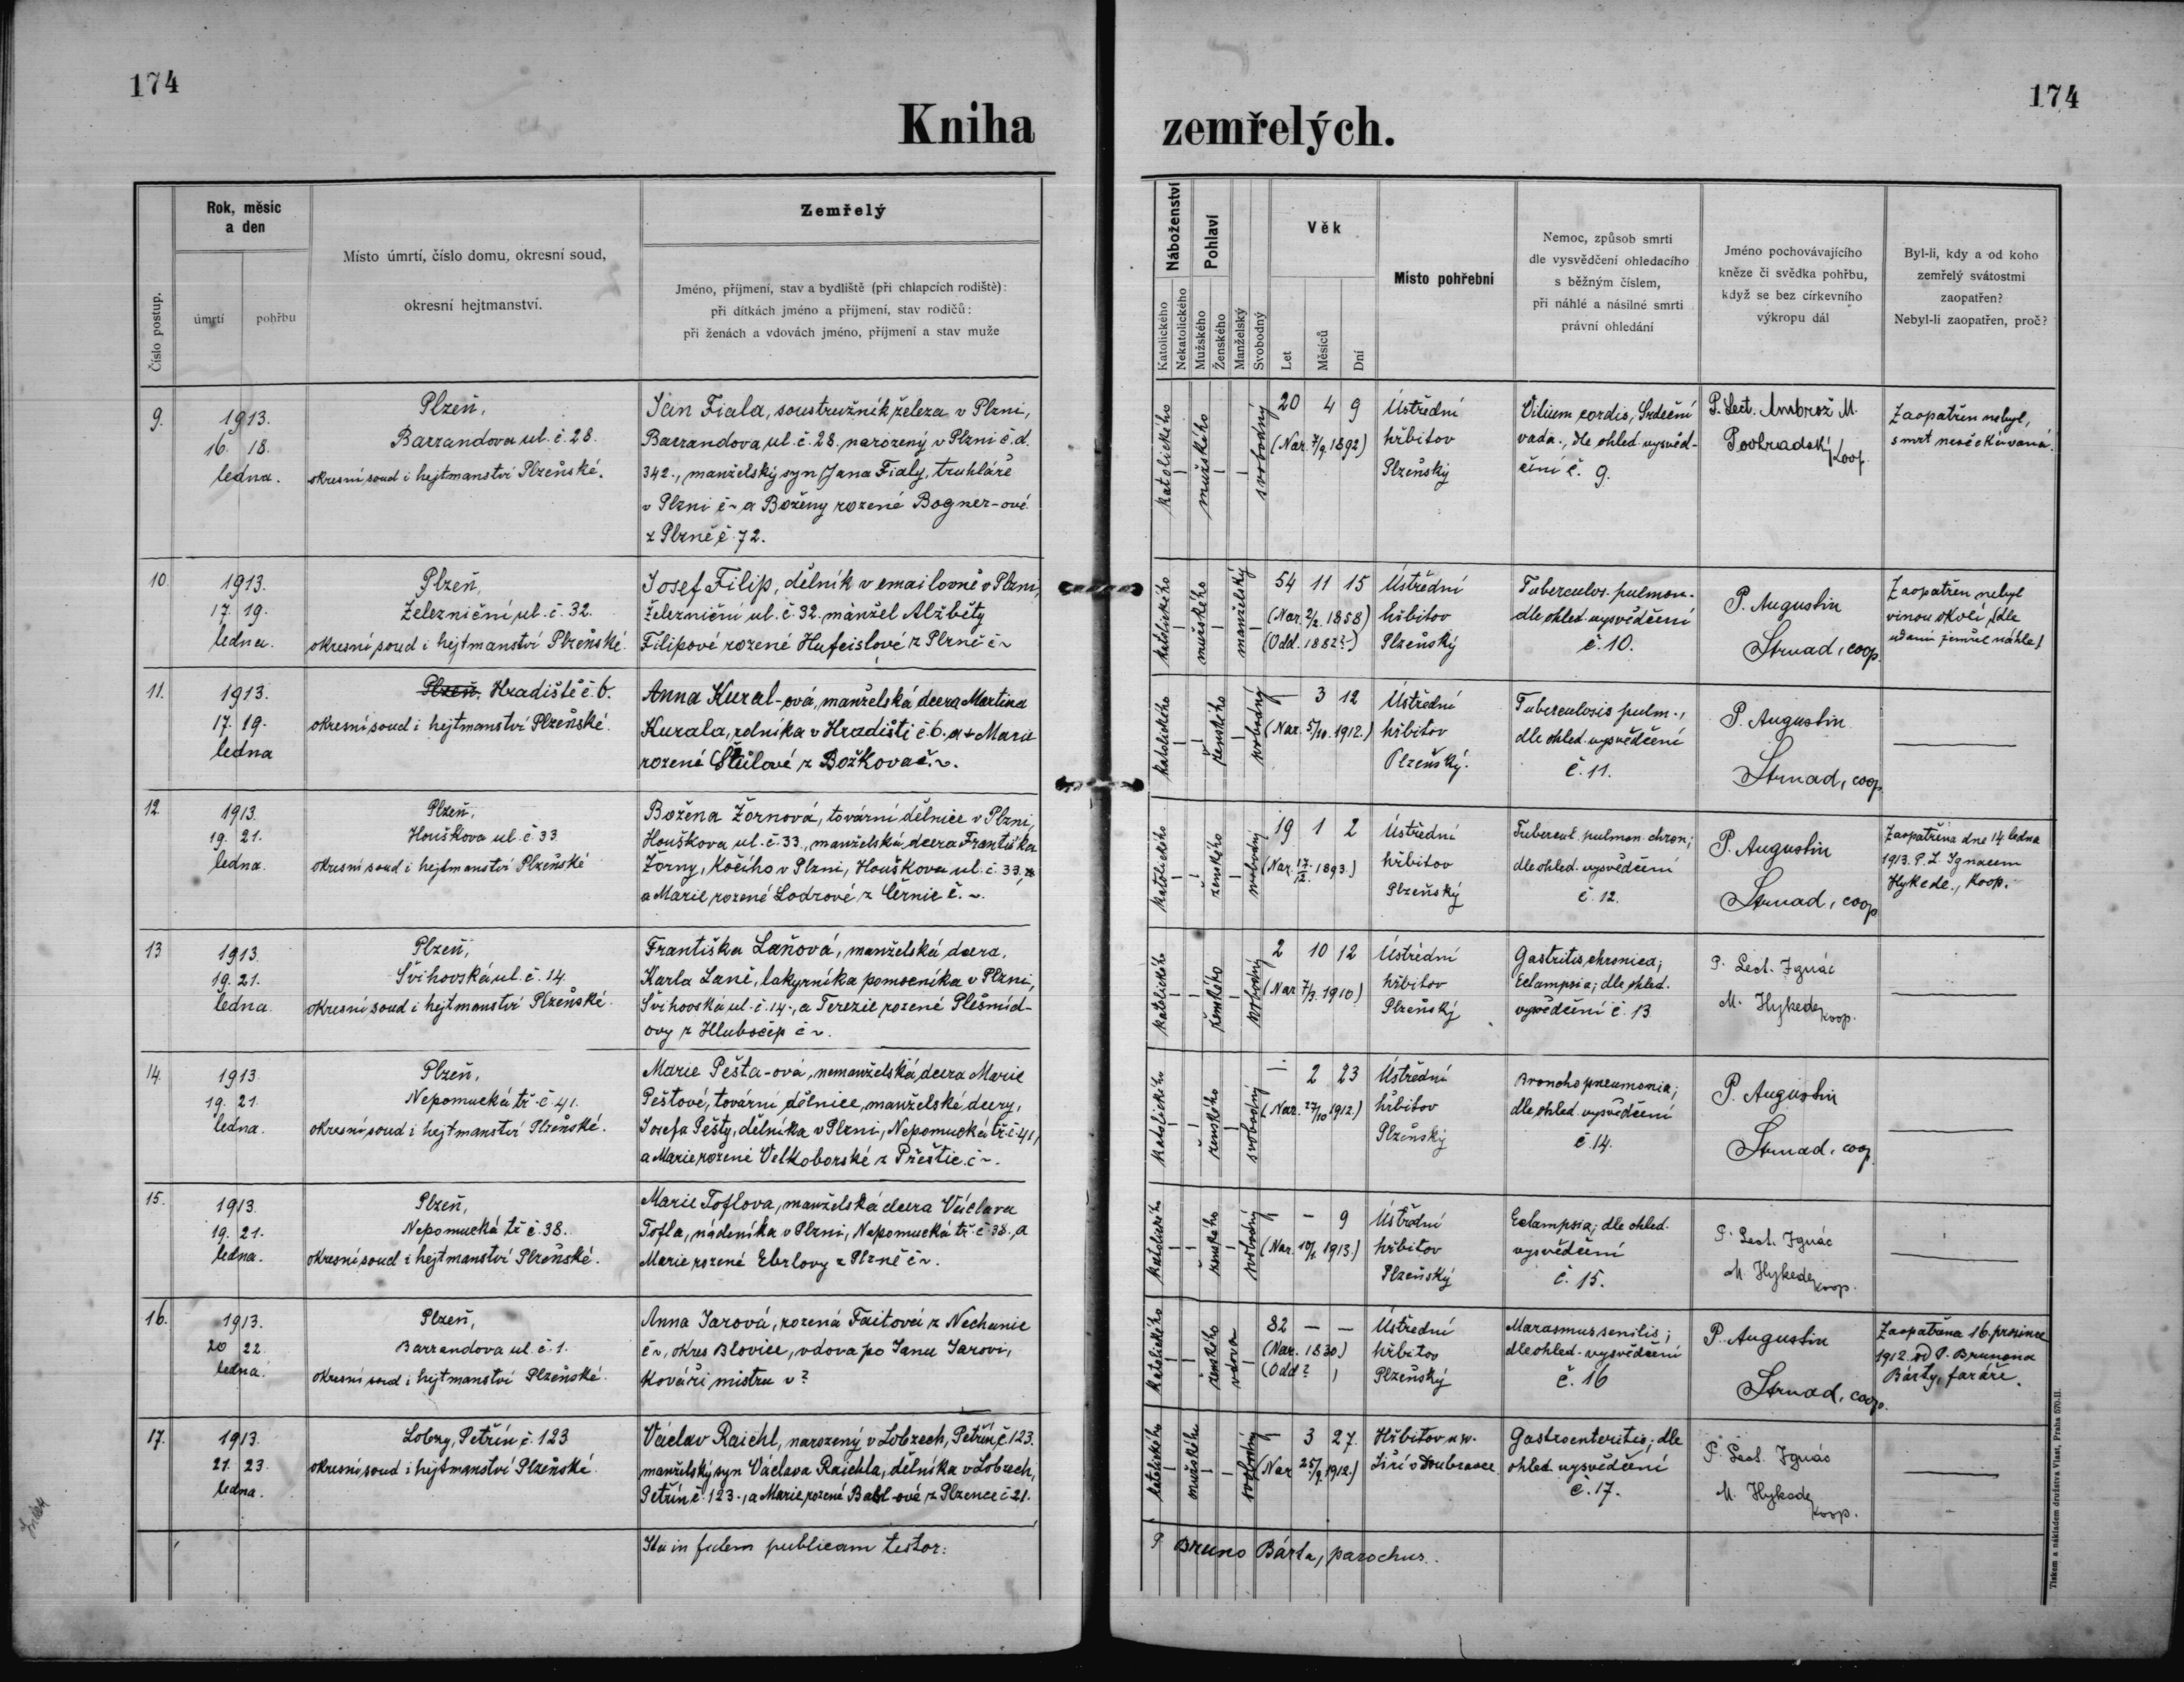 174
174
Kniha zemřelých.
Číslo postup.
Rok, měsíc
a den
úmrtí
pohřbu
Místo úmrtí, číslo domu, okresní soud,
okresní hejtmanství.
Zemřelý
Jméno, příjmení, stav a bydliště (při chlapcích rodiště):
při dítkách jméno a příjmení, stav rodičů:
při ženách a vdovách jméno, příjmení a stav muže
Náboženství
Katolického
Nekatolického
Pohlaví
Mužského
Ženského
Manželský
Svobodný
Věk
Let
Měsíců
Dní
Místo pohřební
Nemoc, způsob smrti
dle vysvědčení ohledacího
s běžným číslem,
při náhlé a násilné smrti
právní ohledání
Jméno pochovávajícího
kněze či svědka pohřbu,
když se bez církevního
výkropu dál
Byl-li, kdy a od koho
zemřelý svátostmi
zaopatřen?
Nebyl-li zaopatřen, proč?
9.
1913.
16. 18.
ledna.
Plzeň,
Barrandova ul. č. 28.
okresní soud i hejtmanství Plzeňské.
Jan Fiala, soustružník železa v Plzni,
Barrandova ul. č. 28, narozený v Plzni č. d.
342., manželský syn Jana Fialy, truhláře
v Plzni č ~ a Boženy rozené Bogner-ové
z Plzně č. 72.
katolického
mužského
svobodný
20 4 9
(Nar. 7/9. 1892)
Ústřední
hřbitov
Plzeňský
Vitium cordis, Srdeční
vada., dle ohled. vysvěd-
čení č. 9.
P. Lect. Ambrož M.
Poobradský
koop.
Zaopatřen nebyl,
smrt neočekávaná.
10.
1913.
17. 19.
ledna.
Plzeň,
Železniční ul. č. 32.
okresní soud i hejtmanství Plzeňské.
Josef Filip, dělník v emailovně v Plzni,
Železniční ul. č. 32. manžel Alžběty
Filipové rozené Hufeislové z Plzně č ~
katolického
mužského
manželský
54 11 15
(Nar. 2/2. 1858)
(Odd. 1882?)
Ústřední
hřbitov
Plzeňský
Tuberculos. pulmon.
dle ohled. vysvědčení
č. 10.
P. Augustin
Strnad, coop.
Zaopatřen nebyl
vinou okolí, (dle
udání zemřel náhle)
11.
1913.
17. 19.
ledna
Plzeň, Hradiště č. 6.
okresní soud i hejtmanství Plzeňské.
Anna Kural-ová, manželská dcera Martina
Kurala, rolníka v Hradišti č. 6. a + Marie
rozené z Božkova č. ~.
katolického
ženského
svobodný
– 3 12
(Nar. 5/10. 1912.)
Ústřední
hřbitov
Plzeňský.
Tuberculosis pulm.,
dle ohled. vysvědčení
č. 11.
P. Augustin
Strnad, coop.
12.
1913.
19. 21.
ledna.
Plzeň,
Houškova ul. č. 33
okresní soud i hejtmanství Plzeňské
Božena Žornová, tovární dělnice v Plzni,
Houškova ul. č. 33., manželská dcera Františka
Žorny, kočího v Plzni, Houškova ul. č. 33,
a Marie rozené Lodrové z Černic č. ~.
katolického
ženského
svobodný
19 1 2
(Nar. 17/12. 1893.)
Ústřední
hřbitov
Plzeňský
Tubercul. pulmon. chron;
dle ohled. vysvědčení
č. 12.
P. Augustin
Strnad, coop
Zaopatřena dne 14 ledna
1913. P. L. Ignacem
Hykede., koop.
13
1913.
19. 21.
ledna.
Plzeň,
Švihovská ul. č. 14
okresní soud i hejtmanství Plzeňské.
Františka Laňová, manželská dcera,
Karla Laně, lakyrníka pomocníka v Plzni,
Švihovská ul. č. 14., a Terezie rozené Plešmíd-
ovy z Hlubočep č ~.
katolického
ženského
svobodný
2 10 12
(Nar. 7/3. 1910)
Ústřední
hřbitov
Plzeňský
Gastritis chronica;
Eclampsia; dle ohled.
vysvědčení č. 13
P. Lect. Ignác
M. Hykede
koop.
14.
1913
19. 21.
ledna.
Plzeň,
Nepomucká tř. č. 41.
okresní soud i hejtmanství Plzeňské.
Marie Pešta-ová, nemanželská dcera Marie
Peštové, tovární dělnice, manželské dcery,
Josefa Pešty, dělníka v Plzni, Nepomucká tř. č. 41,
a Marie rozené Velkoborské z Přeštic č ~.
katolického
ženského
svobodný
– 2 23
(Nar. 27/10 1912.)
Ústřední
hřbitov
Plzeňský
Bronchopneumonia;
dle ohled. vysvědčení
č 14.
P. Augustin
Strnad, coop.
15.
1913.
19. 21.
ledna.
Plzeň,
Nepomucká tř č. 38.
okresní soud i hejtmanství Plzeňské.
Marie Toflova, manželská dcera Václava
Tofla, nádeníka v Plzni, Nepomucká tř. č 38., a
Marie rozené Eberlovy z Plzně č ~.
katolického
ženského
svobodný
– – 9
(Nar. 10/1. 1913.)
Ústřední
hřbitov
Plzeňský
Eclampsia; dle ohled.
vysvědčení
č. 15.
P. Lect. Ignác
M. Hykede
koop.
16.
1913.
20 22.
ledna.
Plzeň,
Barrandova ul. č. 1.
okresní soud i hejtmanství Plzeňské.
Anna Jarová, rozená Faitová z Nechanic
č ~, okres Blovice, vdova po Janu Jarovi,
kováři mistru v ?
katolického
ženského
vdova
82 – –
(Nar. 1830.)
(Odd ? )
Ústřední
hřbitov
Plzeňský
Marasmus senilis;
dle ohled. vysvědčení
č. 16
P. Augustin
Strnad, coop.
Zaopatřena 16. prosince
1912. od P. Brunona
Bárty, faráře.
17.
1913.
21. 23.
ledna.
Lobzy, Petřín č. 123
okresní soud i hejtmanství Plzeňské.
Václav Raichl, narozený v Lobzech, Petřín č. 123.
manželský syn Václava Raichla, dělníka v Lobzech,
Petřín č. 123., a Marie rozené Babl-ové z Plzence č 21.
katolického
mužského
svobodný
– 3 27.
(Nar 25/9. 1912.)
Hřbitov u sv.
Jiří v Doubravce.
Gastroenteritis; dle
ohled. vysvědčení
č. 17.
P. Lect. Ignác
M. Hykede
koop.
Ita in fidem publicam testor:
P. Bruno Bárta, parochus.
Tiskem a nákladem družstva Vlast, Praha 570-II.